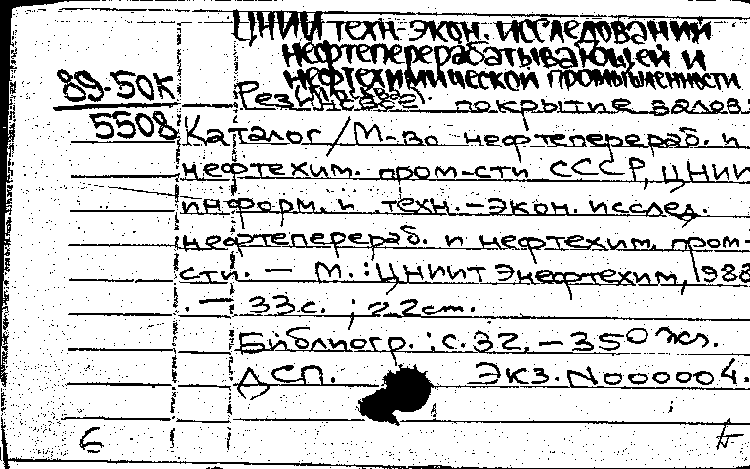 ЦНИИ ТЕХН-ЭКОН. ИССЛЕДОВАНИЙ
НЕФТЕПЕРЕРАБАТЫВАЮЩЕЙ И
НЕФТЕХИМИЧЕСКОЙ ПРОМЫШЛЕННОСТИ
89-50К
5508
Резиновое покрытие валов:
Каталог/М-во нефтеперераб. и
нефтехим. пром-сти СССР, ЦНИИ
информ. и техн.-экон. исслед.
нефтеперераб. и нефтехим. пром-
сти. — М.: ЦНИИТЭнефтехим, 1988
. — 33с. ; 22см.
Библиогр.: с.32. — 350 экз.
ДСП. Экз. N000004.
6